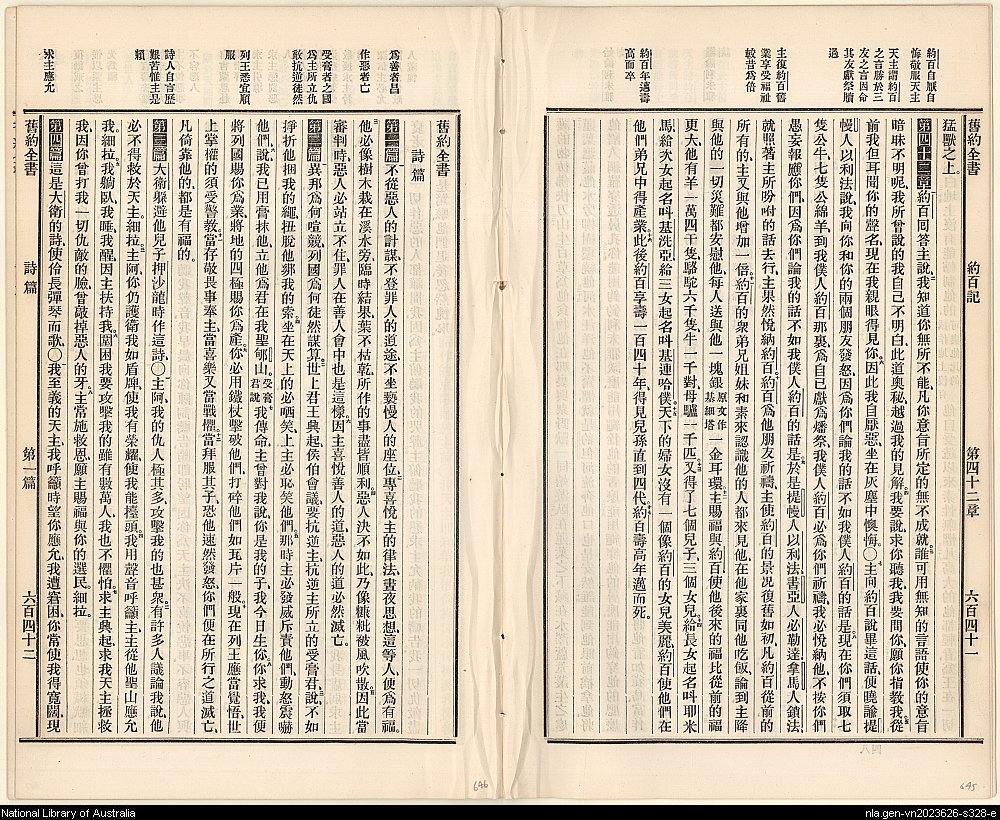 約百自厭自
悔敬服天主
天主謂約百
之言勝於三
友之言因命
其友獻祭贖
過
主復約百舊
業享受福祉
較昔為倍
約百年邁壽
高而卒
舊約全書　約百記　第四十二章　六百四十一
猛獸之上。
第四十二章約百回答主說、我知道你無所不能、凡你意旨所定的、無不成就、誰可用無知的言語、使你的意旨
暗昧不明呢、我所曾說的、我自己不明白、此道奧秘、越過我的見解、我要說、求你聽我、我要問你、願你指教我、我從
前我但耳聞你的聲名、現在我親眼得見你、因此我自厭惡、坐在灰塵中懊悔。○主向約百說畢這話、便曉諭提
幔人以利法說、我向你和你的兩個朋友發怒、因爲你們論我的話、不如我僕人約百的話是、現在你們須取七
隻公牛、七隻公綿羊、到我僕人約百那裏、爲自己獻爲燔祭、我僕人約百必爲你們祈禱、我必悅納他、不按你們
愚妄報應你們、因爲你們論我的話、不如我僕人約百的話是、於是提幔人以利法、書亞人必勒達、拿馬人鎖法、
就照著主所吩咐的話去行、主果然悅納約百、約百爲他朋友祈禱、主使約百的景况復舊如初、凡約百從前的
所有的、主又與他增加一倍、約百的衆弟兄姐妹、和素來認識他的人、都來見他、在他家裏同他吃飯、論到主降
與他的一切災難、都安慰他、每人送與他一塊銀、原文作基細塔一金耳環、主賜福與約百、使他後來的福、比從前的福
更大、他有羊一萬四千隻、駱駝六千隻、牛一千對、母驢一千匹、又得了七個兒子、三個女兒、給長女起名叫耶米
馬、給次女起名叫基洗亞、給三女起名叫基連哈僕、天下的婦女、沒有一個像約百的女兒美麗、約百使他們在
他們弟兄中得產業、此後約百享壽一百四十年、得見兒孫、直到四代、約百壽高年邁而死。
爲善者昌
作惡者亡
受膏者之國
爲主所立仇
敵抗逆徒然
列王悉宜順
服
詩人自言歷
艱苦惟主是
賴
求主應允
舊約全書
詩篇
第一篇不從惡人的計謀、不登罪人的道途、不坐褻慢人的座位、專喜悅主的律法、晝夜思想、這等人便爲有福。
他必像樹木栽在溪水旁、臨時結果、葉不枯乾、所作的事盡皆順利、惡人決不如此、乃像糠粃被風吹散、因此當
審判時、惡人必站立不住、罪人在善人會中也是這樣、因主喜悅善人的道、惡人的道必然滅亡。
第二篇異邦爲何喧競、列國爲何徒然謀算、世上君王興起、侯伯會議、要抗逆主、抗逆主所立的受膏君、說、不如
掙折他捆我的繩、扭脫他綁我的索、坐在天上的必哂笑、上主必恥笑他們、那時主必發威斥責他們、動怒震嚇
他們、說、我已用膏抹他、立他爲君、在我聖郇山、受膏君說我傳命、主曾對我說、你是我的子、我今日生你、你求我、我便
將列國賜你爲業、將地的四極賜你爲產、你必用鐵杖擊破他們、打碎他們如瓦片一般、現在列王應當覺悟、世
上掌權的須受警教、當存敬畏事奉主、當喜樂又當戰懼、當拜服其子、恐他速然發怒、你們便在所行之道滅亡、
凡倚靠他的、都是有福的。
第三篇大衛躲避他兒子押沙龍時作這詩、○主阿、我的仇人極其多、攻擊我的也甚衆、有許多人議論我說、他
必不得救於天主。細拉、主阿、你仍護衛我如盾牌、使我有榮耀、使我能擡頭、我用聲音呼籲主、主從他聖山應允
我。細拉、我躺臥、我睡、我醒、因主扶持我、圍困我要攻擊我的、雖有數萬人、我也不懼怕、求主興起、求我天主拯救
我、因你曾打我一切仇敵的臉、曾敲掉惡人的牙、主常施救恩、願主賜福與你的選民。細拉。
第四篇這是大衛的詩、使伶長彈琴而歌、○我至義的天主、我呼籲時、望你應允、我遭窘困、你常使我得寬闊、現
舊約全書　詩篇　第一篇　六百四十二
646
645
National Library of Australia
nla.gen-vn2023626-s328-e